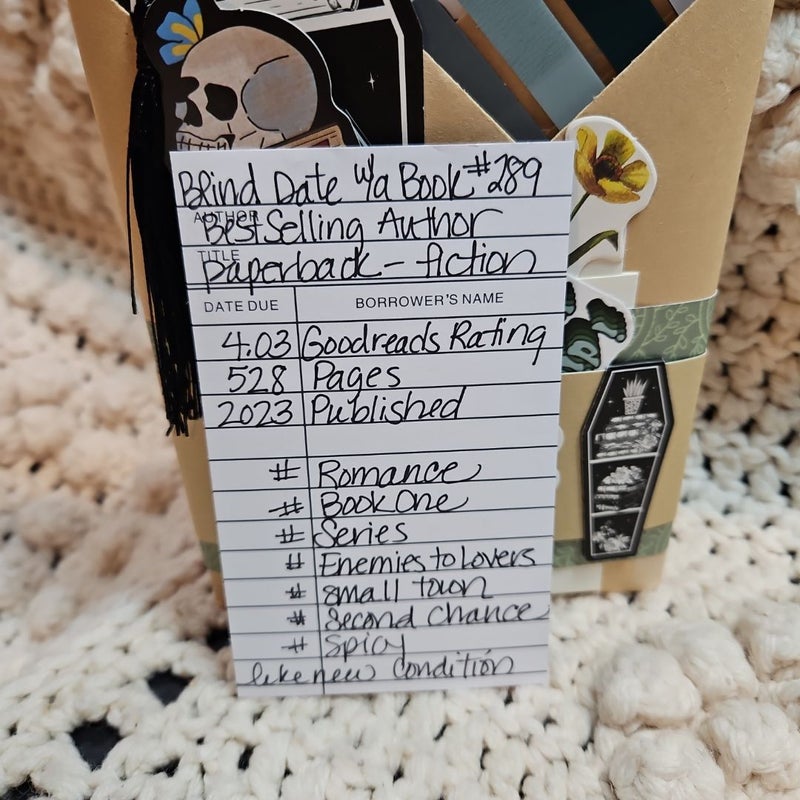 Blind Date w/a Book #289
AUTHOR
Best Selling Author
TITLE
paperback - fiction
DATE DUE BORROWER'S NAME
4.03 Goodreads Rating
528 Pages
2023 Published
# Romance
# Book One
# Series
# Enemies to Lovers
# small town
# Second Chance
# Spicy
like new condition